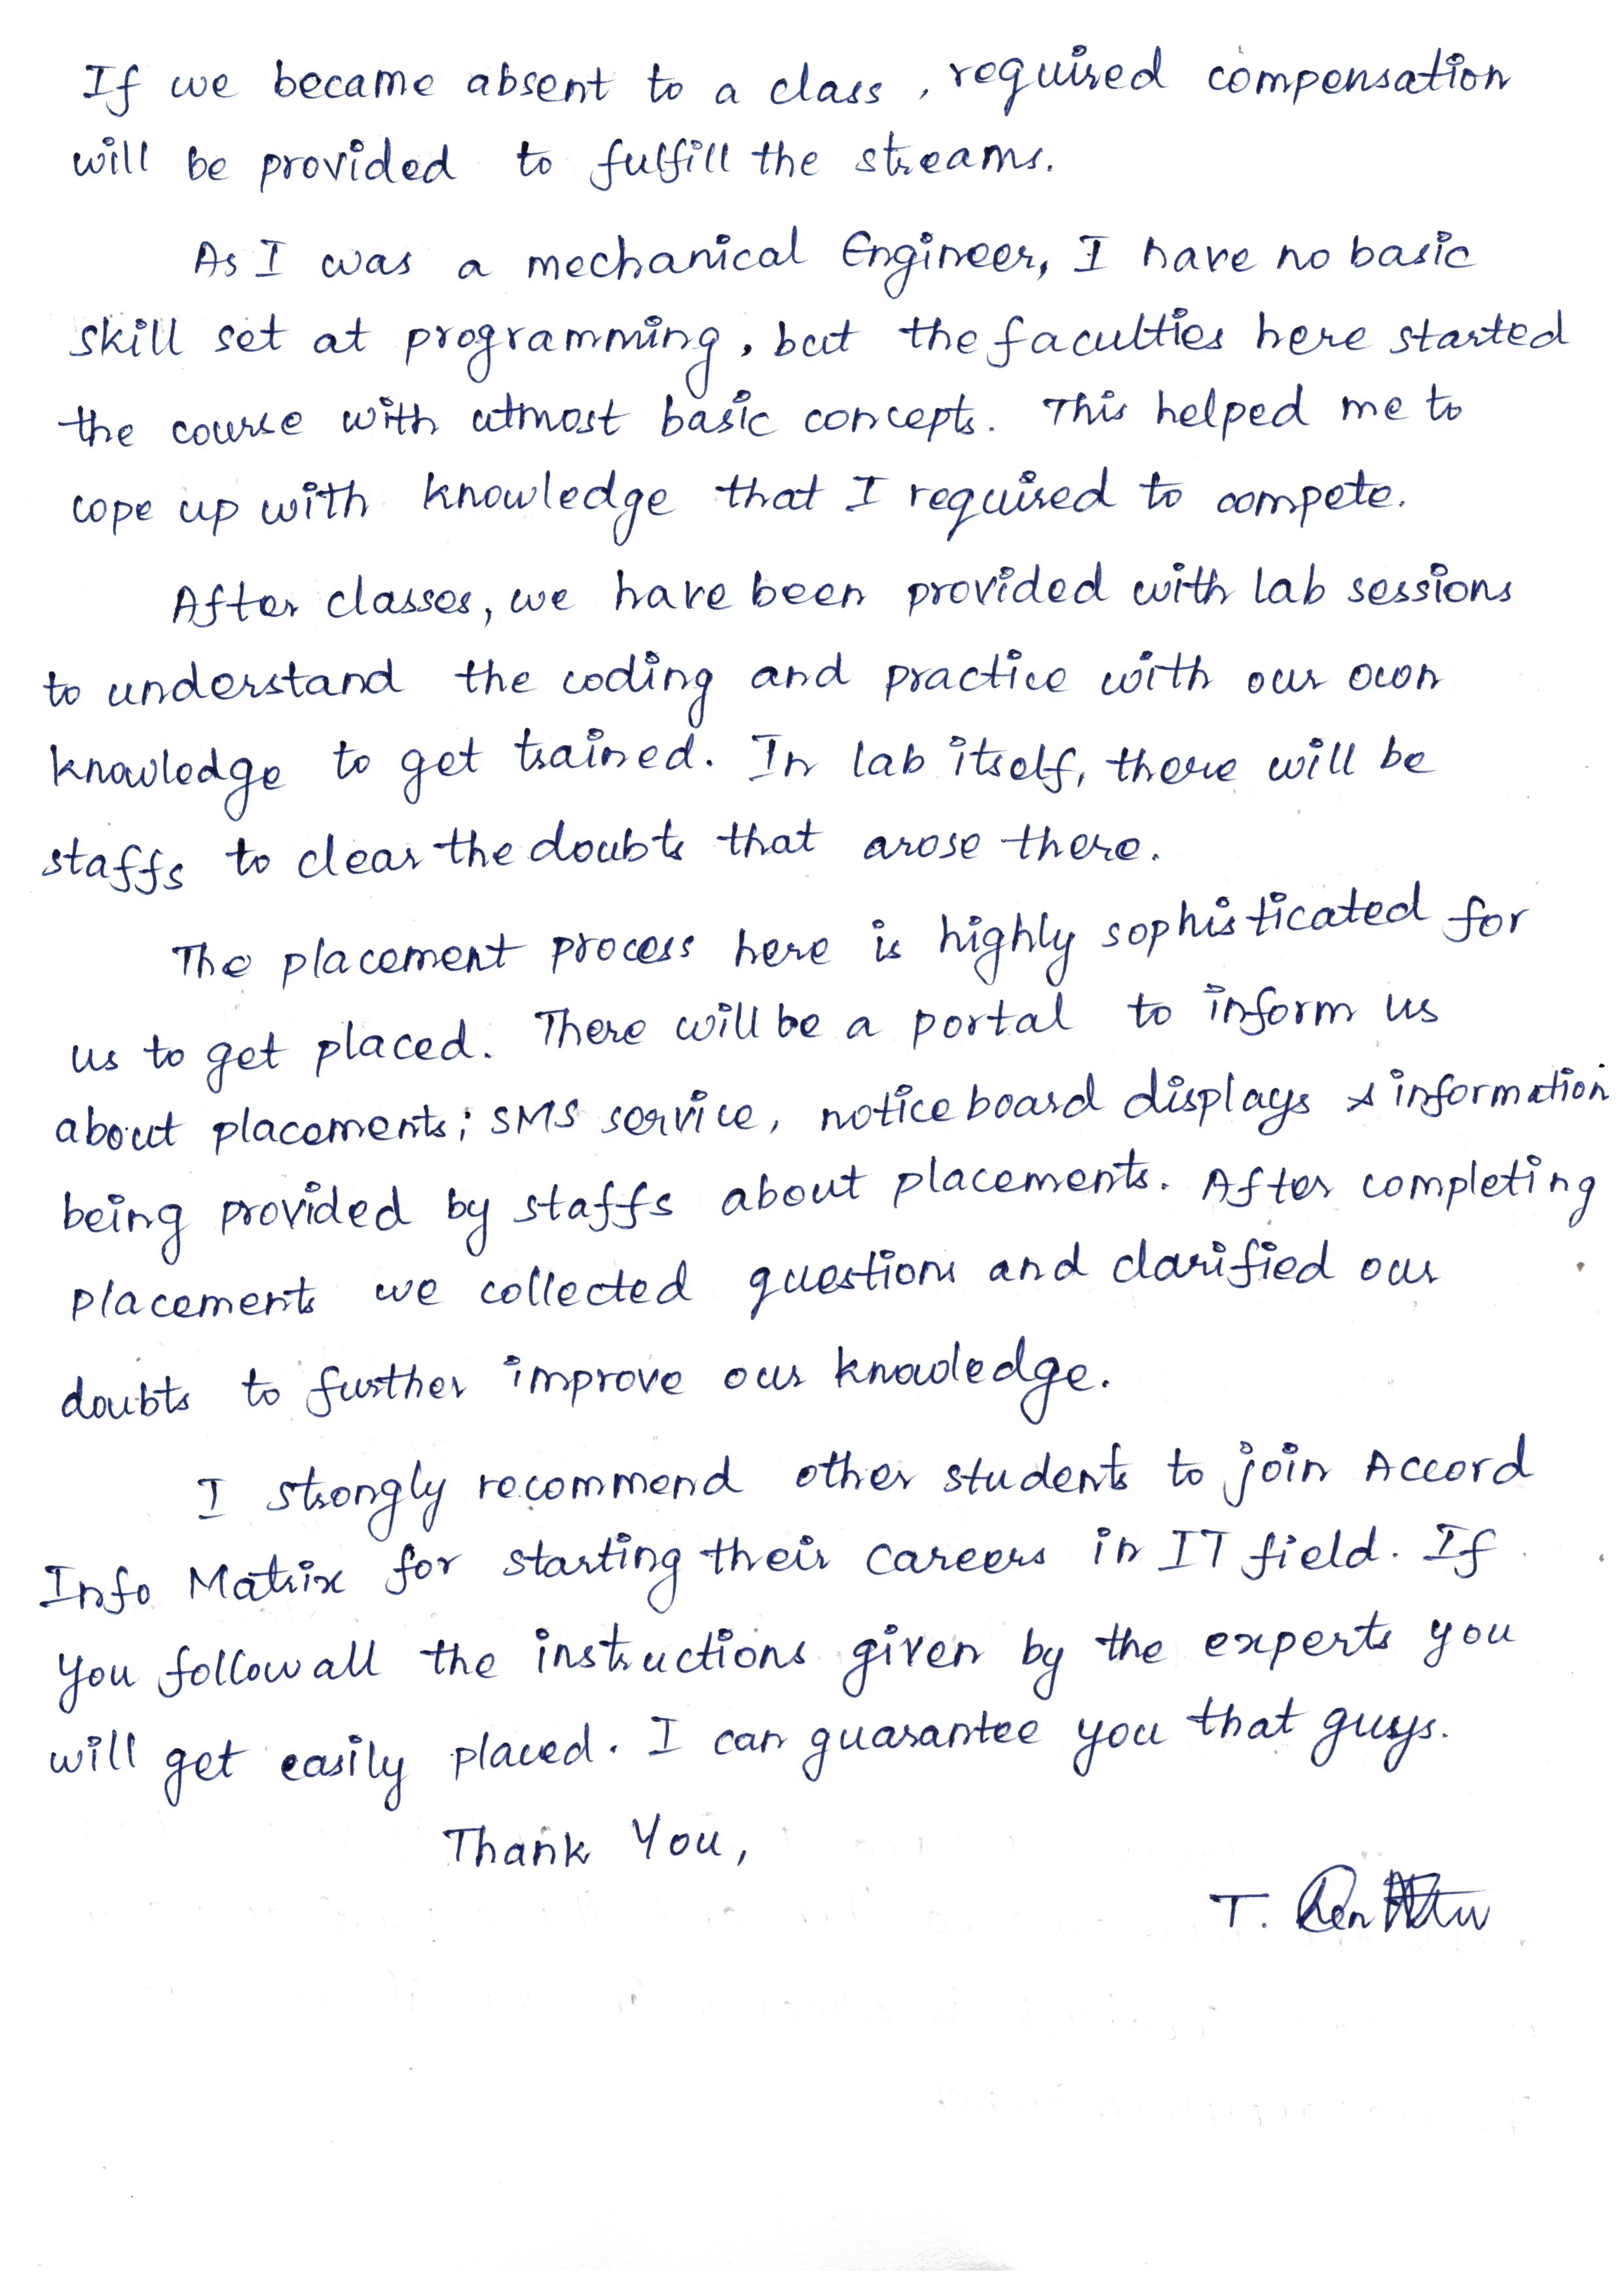 If we became absent to a class, required compensation
will be provided to fulfill the streams.
As I was a mechanical Engineer, I have no basic
skill set at programming, but the faculties here started
the course with utmost basic concepts. This helped me to
cope up with knowledge that I required to compete.
After classes, we have been provided with lab sessions
to understand the coding and practice with our own
knowledge to get trained. In lab itself, there will be
staffs to clear the doubts that arose there.
The placement process here is highly sophisticated for
us to get placed. There will be a portal to inform us
about placements; SMS service, notice board displays & information
being provided by staffs about placements. After completing
placements we collected questions and clarified our
doubts to further improve our knowledge.
I strongly recommend other students to join Accord
Info Matrix for starting their careers in IT field. If
you follow all the instructions given by the experts you
will get easily placed. I can guarantee you that guys.
Thank You,
T.